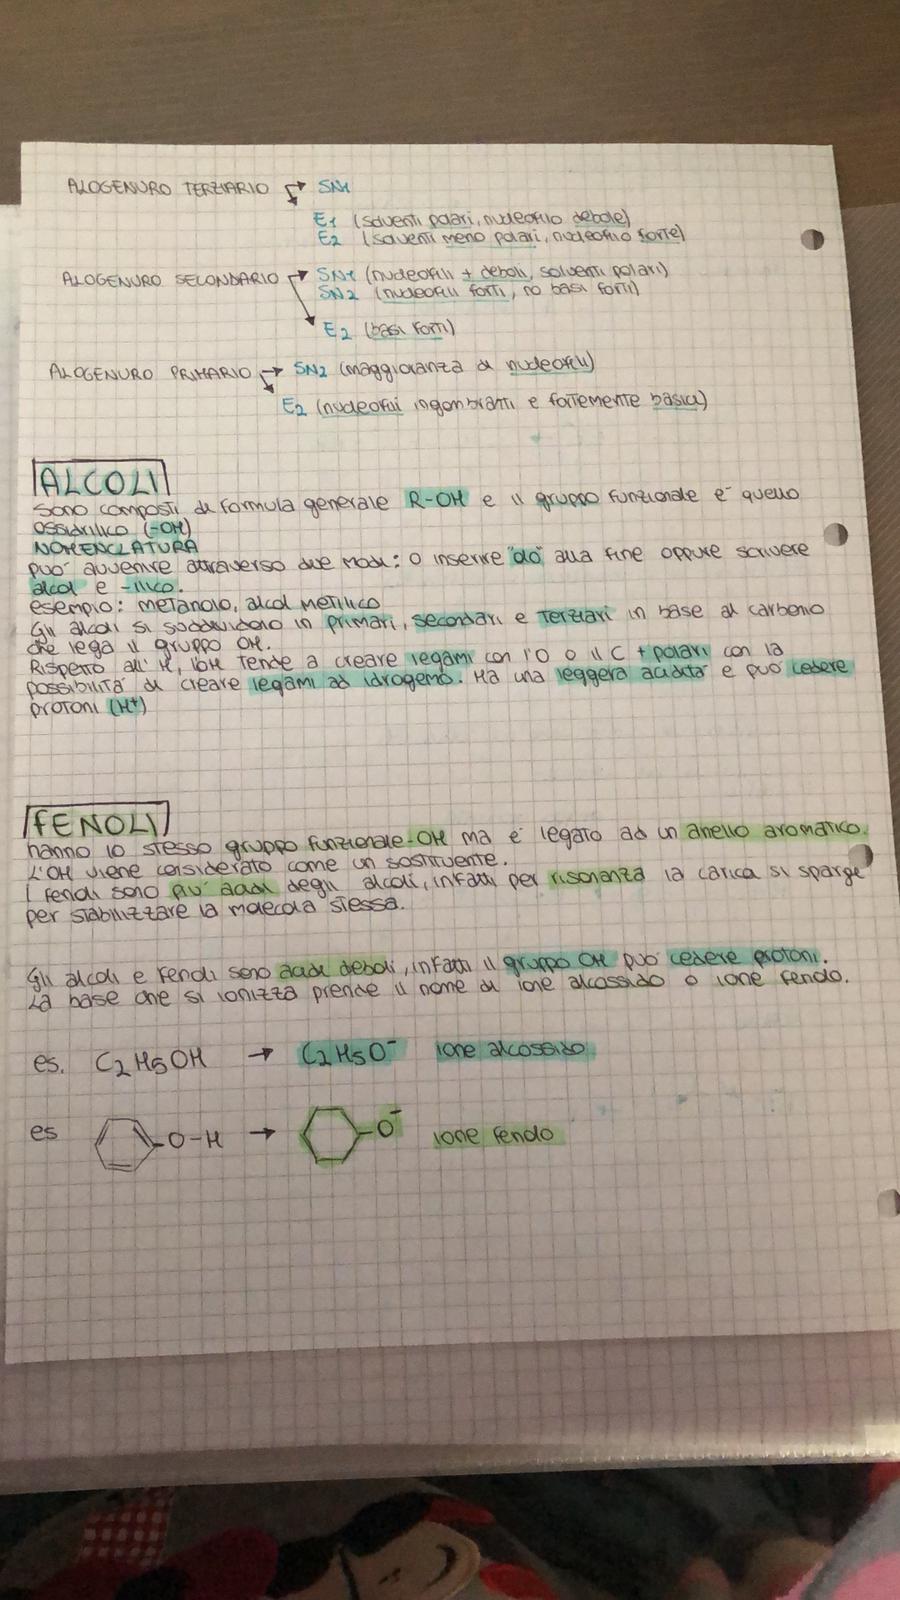 ALOGENURO TERZIARIO → SN1
E1 (solventi polari, nucleofilo debole)
E2 (solventi meno polari, nucleofilo forte)
ALOGENURO SECONDARIO → SN1 (nucleofili + deboli, solventi polari)
SN2 (nucleofili forti, no basi forti)
E2 (basi forti)
ALOGENURO PRIMARIO → SN2 (maggioranza di nucleofili)
E2 (nucleofili ingombranti e fortemente basici)
ALCOLI
sono composti di formula generale R-OH e il gruppo funzionale e' quello
ossidrilico (-OH)
NOMENCLATURA
può avvenire attraverso due modi: o inserire "olo" alla fine oppure scrivere
alcol e -ilico.
esempio: metanolo, alcol metilico
Gli alcoli si suddividono in primari, secondari e terziari in base al carbonio
che lega il gruppo OH.
Rispetto all'H, l'OH tende a creare legami con l'O o il C + polari con la
possibilità di creare legami ad idrogeno. Ha una leggera acidità e può cedere
protoni (H+)
FENOLI
hanno lo stesso gruppo funzionale -OH ma è legato ad un anello aromatico.
L'OH viene considerato come un sostituente.
I fenoli sono più acidi degli alcoli, infatti per risonanza la carica si sparge
per stabilizzare la molecola stessa.
Gli alcoli e fenoli sono acidi deboli, infatti il gruppo OH può cedere protoni.
La base che si ionizza prende il nome di ione alcossido o ione fenolo.
es. C2H5OH → C2H5O⁻ ione alcossido
es O-H → O⁻ ione fenolo